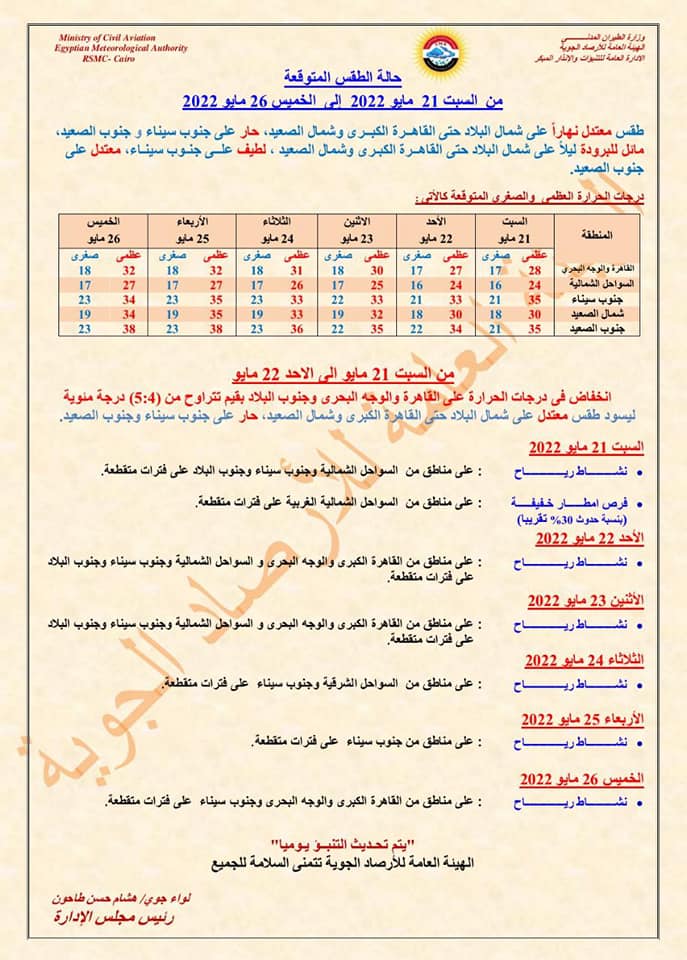 Ministry of Civil Aviation
Egyptian Meteorological Authority
RSMC- Cairo
وزارة الطيران المدنــي
الهيئة العامة للأرصاد الجوية
الادارة العامة للتنبؤات والانذار المبكر
حالة الطقس المتوقعة
من السبت 21 مايو 2022 إلى الخميس 26 مايو 2022
طقس معتدل نهاراً على شمال البلاد حتى القاهرة الكبرى وشمال الصعيد، حار على جنوب سيناء و جنوب الصعيد،
مائل للبرودة ليلاً على شمال البلاد حتى القاهرة الكبرى وشمال الصعيد ، لطيف على جنوب سيناء، معتدل على
جنوب الصعيد.
درجات الحرارة العظمى والصغرى المتوقعة كالأتي:
المنطقة السبت الأحد الاثنين الثلاثاء الأربعاء الخميس
21 مايو 22 مايو 23 مايو 24 مايو 25 مايو 26 مايو
عظمى صغرى عظمى صغرى عظمى صغرى عظمى صغرى عظمى صغرى عظمى صغرى
القاهرة والوجه البحري 28 17 27 17 30 18 31 18 32 18 32 18
السواحل الشمالية 24 16 24 16 25 17 26 17 27 17 27 17
جنوب سيناء 35 21 33 21 33 22 33 22 35 23 34 23
شمال الصعيد 30 18 30 18 32 19 33 19 35 19 34 19
جنوب الصعيد 35 21 34 22 35 22 36 23 38 23 38 23
من السبت 21 مايو الى الاحد 22 مايو
انخفاض فى درجات الحرارة على القاهرة والوجه البحرى وجنوب البلاد بقيم تتراوح من (5:4) درجة مئوية
ليسود طقس معتدل على شمال البلاد حتى القاهرة الكبرى وشمال الصعيد، حار على جنوب سيناء وجنوب الصعيد.
السبت 21 مايو 2022
• نشــاط ريــاح : على مناطق من السواحل الشمالية وجنوب سيناء وجنوب البلاد على فترات متقطعة.
• فرص امطــار خـفيفـة : على مناطق من السواحل الشمالية الغربية على فترات متقطعة.
(بنسبة حدوث 30% تقريبا)
الأحد 22 مايو 2022
• نشــاط ريــاح : على مناطق من القاهرة الكبرى والوجه البحرى و السواحل الشمالية وجنوب سيناء وجنوب البلاد
على فترات متقطعة.
الأثنين 23 مايو 2022
• نشــاط ريــاح : على مناطق من القاهرة الكبرى والوجه البحرى و السواحل الشمالية وجنوب سيناء وجنوب البلاد
على فترات متقطعة.
الثلاثاء 24 مايو 2022
• نشــاط ريــاح : على مناطق من السواحل الشرقية وجنوب سيناء على فترات متقطعة.
الأربعاء 25 مايو 2022
• نشــاط ريــاح : على مناطق من جنوب سيناء على فترات متقطعة.
الخميس 26 مايو 2022
• نشــاط ريــاح : على مناطق من القاهرة الكبرى والوجه البحرى وجنوب سيناء على فترات متقطعة.
"يتم تحـديث التنبـؤ يـوميا"
الهيئة العامة للأرصاد الجوية تتمنى السلامة للجميع
لواء جوي/ هشام حسن طاحون
رئيس مجلس الإدارة
الهيئة العامة للأرصاد الجوية